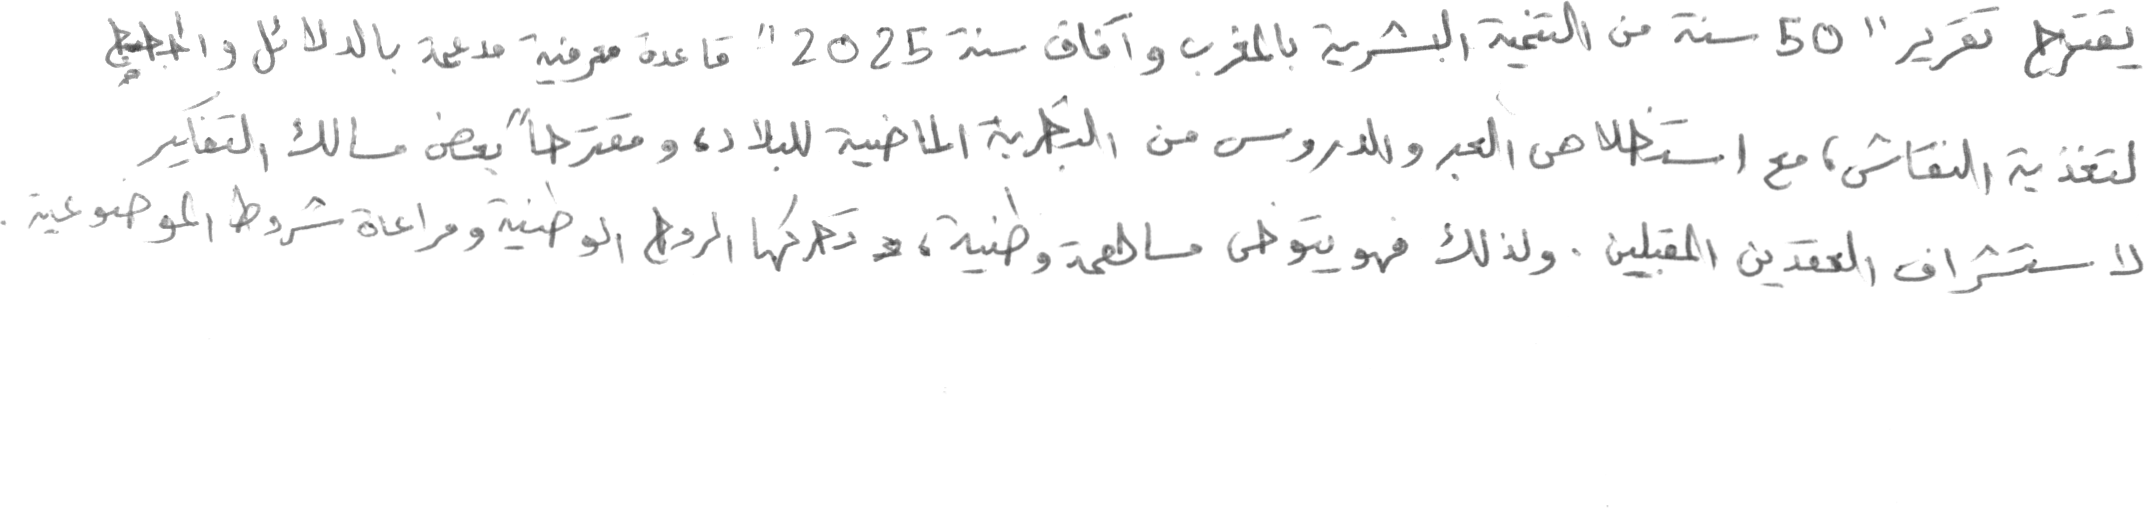 يقترح تقرير "50 سنة من التنمية البشرية بالمغرب وآفاق سنة 2025" قاعدة معرفية مدعمة بالدلائل والحجج
لتغذية النقاش، مع استخلاص العبر والدروس من التجربة الماضية للبلاد، ومقترحاً بعض مسالك التفكير
لاستشراف العقدين المقبلين. ولذلك فهو يتوخى مساهمة وطنية، تحركها الروح الوطنية ومراعاة شروط الموضوعية.